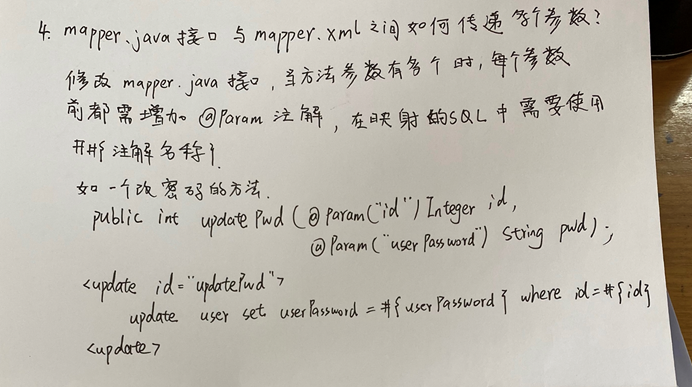 4. mapper.java接口 与 mapper.xml之间如何传递多个参数?
修改 mapper.java 接口,当方法参数有多个时,每个参数
前都需增加 @Param 注解,在映射的SQL中需要使用
##{注解名称}.
如一个改密码的方法.
public int updatePwd (@Param("id") Integer id,
@Param("userPassword") String pwd);
<update id="updatePwd">
update user set userPassword = #{userPassword} where id=#{id}
<update>